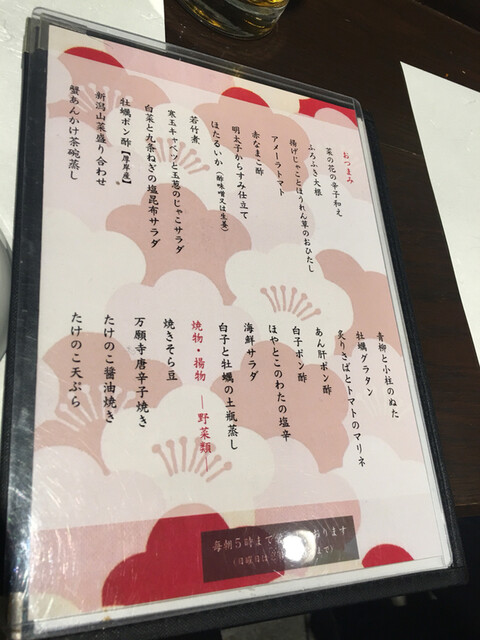 おつまみ
菜の花の辛子和え
ふろふき大根
揚げじゃことほうれん草のおひたし
アメーラトマト
赤なまこ酢
明太子からすみ仕立て
ほたるいか(酢味噌又は生姜)
若竹煮
寒玉キャベツと玉葱のじゃこサラダ
白菜と九条ねぎの塩昆布サラダ
牡蠣ポン酢【厚岸産】
新潟山菜盛り合わせ
蟹あんかけ茶碗蒸し
青柳と小柱のぬた
牡蠣グラタン
炙りさばとトマトのマリネ
あん肝ポン酢
白子ポン酢
ほやとこのわたの塩辛
海鮮サラダ
白子と牡蠣の土瓶蒸し
焼物・揚物 ―野菜類―
焼きそら豆
万願寺唐辛子焼き
たけのこ醤油焼き
たけのこ天ぷら
毎朝5時まで おります
(日曜日は まで)